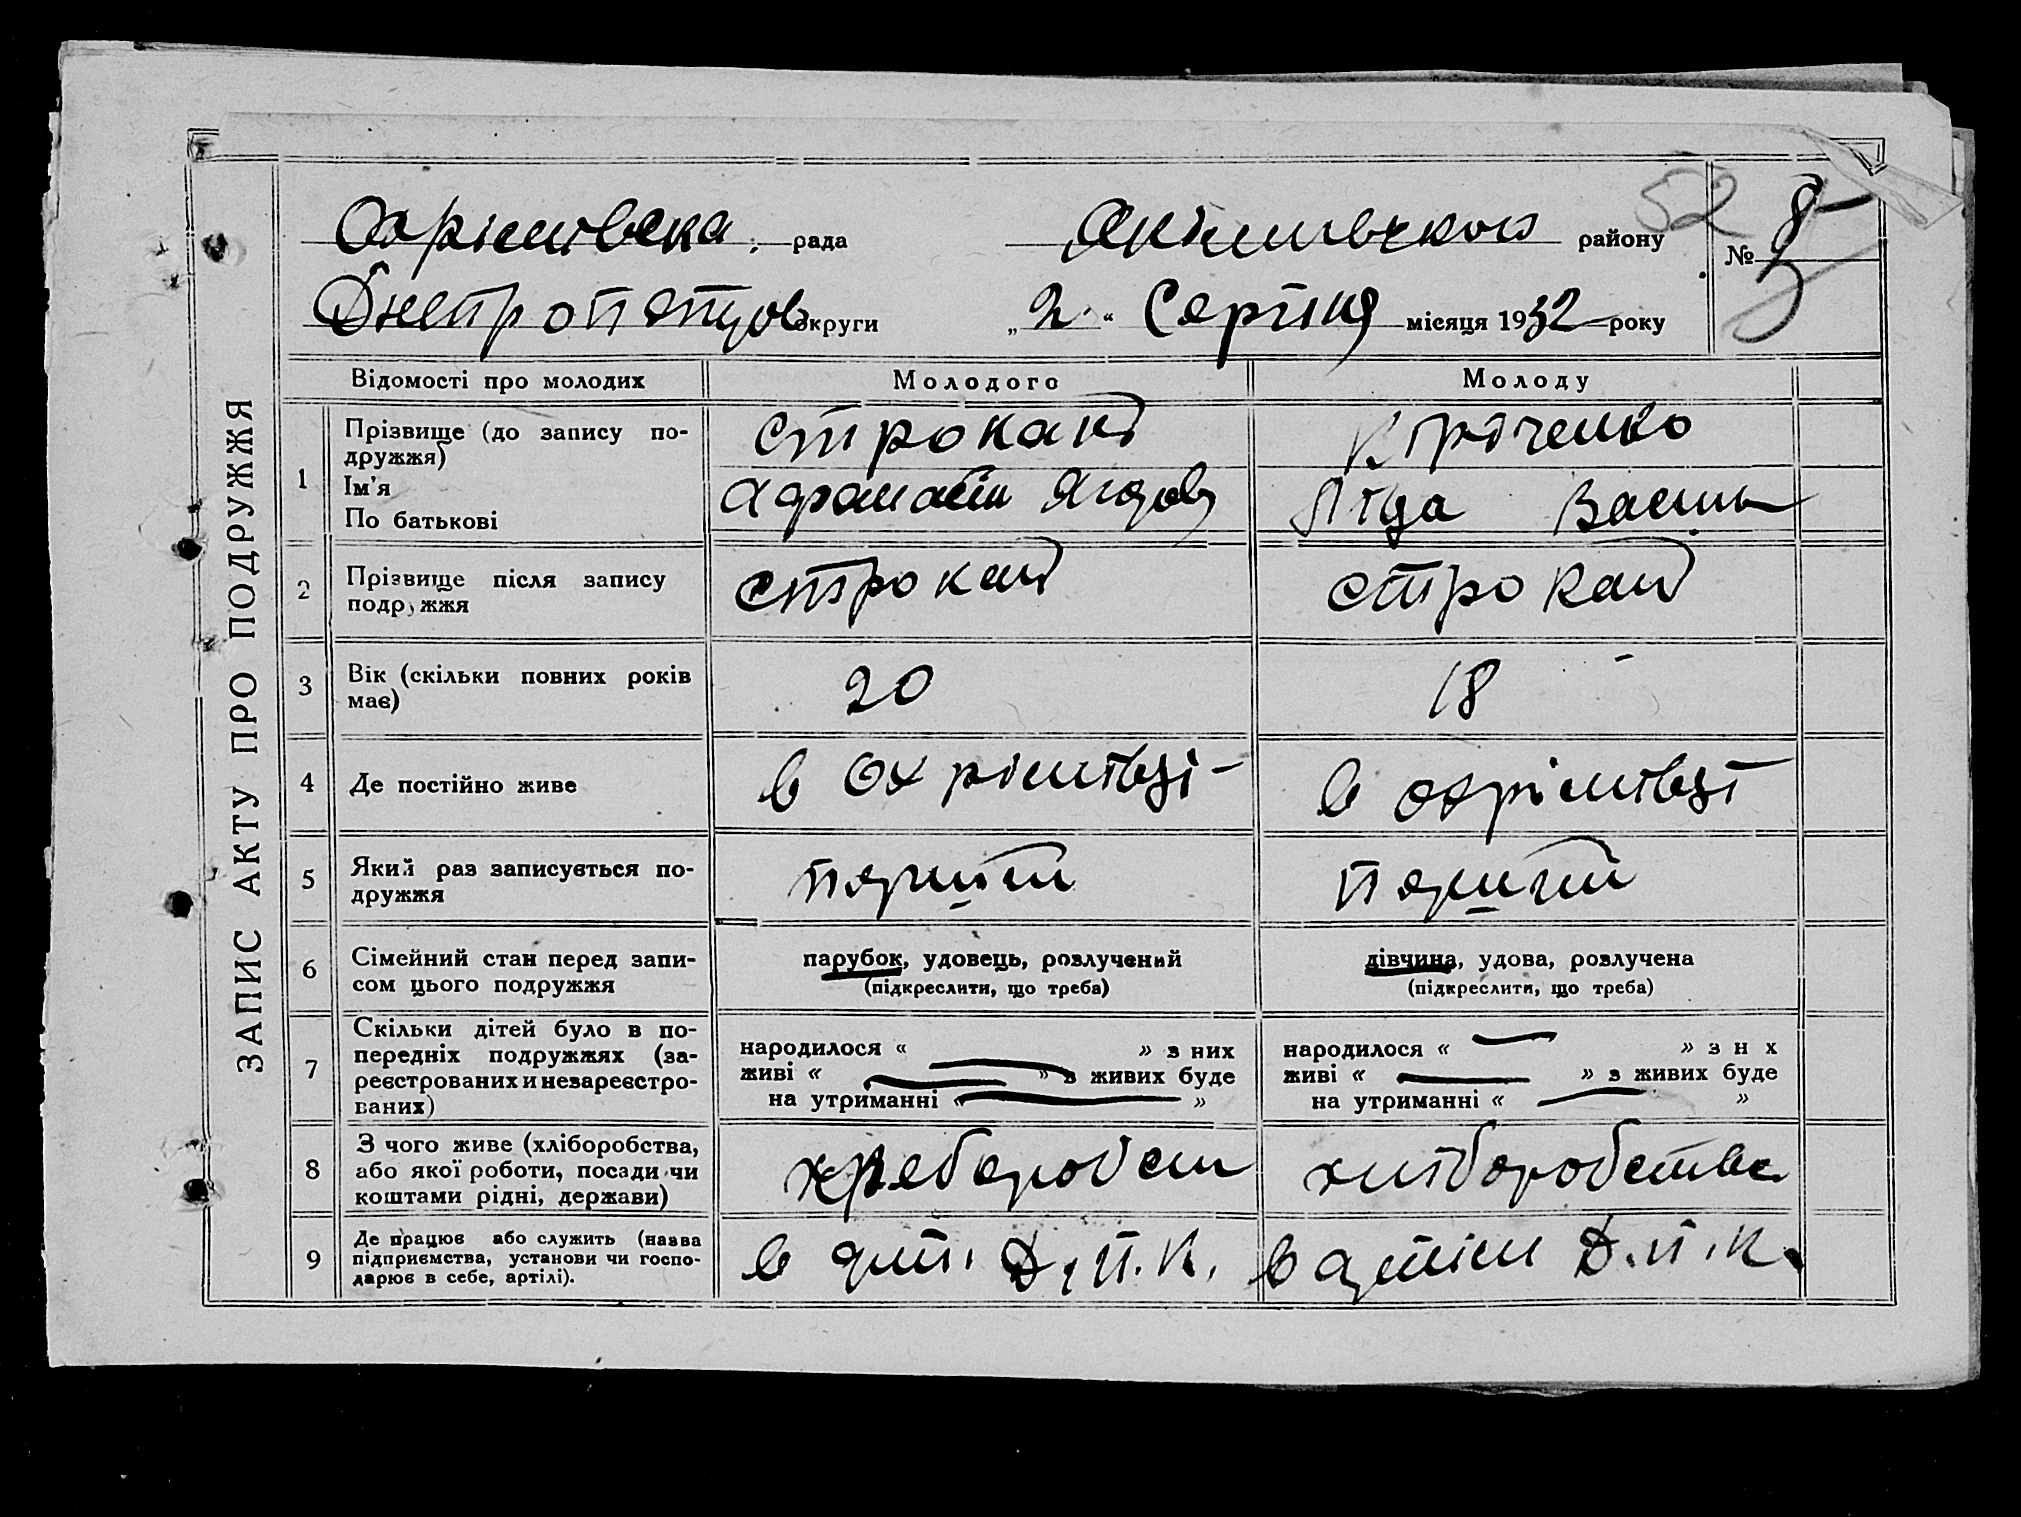 ЗАПИС АКТУ ПРО ПОДРУЖЖЯ
Охрімовська рада
Якімивского району
52
№ 8
Днепропетров округи
„2.“ Серпня місяця 1932 року
Відомості про молодих
Молодого
Молоду
1
Прізвище (до запису по-
дружжя)
Ім'я
По батькові
Строкань
Афанасій
Васил
2
Прізвище після запису
подружжя
Строкань
Строкань
3
Вік (скільки повних років
має)
20
18
4
Де постійно живе
в Охрімівці
в Охрімівці
5
Який раз записується по-
дружжя
перший
перший
6
Сімейний стан перед запи-
сом цього подружжя
парубок, удовець, розлучений
(підкреслити, що треба)
дівчина, удова, розлучена
(підкреслити, що треба)
7
Скільки дітей було в по-
передніх подружжях (за-
реєстрованих и незареєстро-
ваних)
народилося « » з них
живі « » з живих буде
на утриманні « »
народилося « » з н х
живі « » з живих буде
на утриманні « »
8
З чого живе (хліборобства,
або якої роботи, посади чи
коштами рідні, держави)
хліборобства
9
Де працює або служить (назва
підприємства, установи чи госпо-
дарює в себе, артілі).
в арт. Д.П.К.
в артіли Д.П.К.